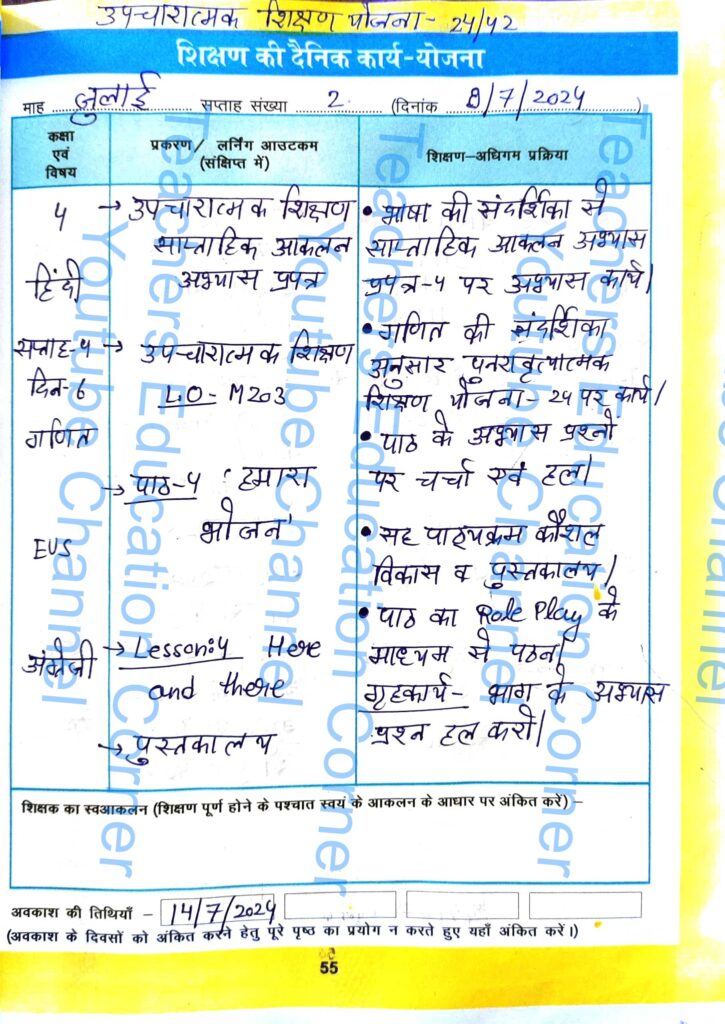 उपचारात्मक शिक्षण योजना- 24/42
शिक्षण की दैनिक कार्य-योजना
माह जुलाई सप्ताह संख्या 2 (दिनांक /7/2024)
कक्षा एवं विषय
प्रकरण/ लर्निंग आउटकम (संक्षिप्त में)
शिक्षण-अधिगम प्रक्रिया
4
हिंदी
→ उपचारात्मक शिक्षण
साप्ताहिक आकलन
अभ्यास प्रपत्र
• भाषा की संदर्शिका से
साप्ताहिक आकलन अभ्यास
प्रपत्र-4 पर अभ्यास कार्य।
सप्ताह-4
दिन-6
गणित
→ उपचारात्मक शिक्षण
LO- M203
• गणित की संदर्शिका
अनुसार पुनरावृत्यात्मक
शिक्षण योजना- 24 पर कार्य।
EVS
→ पाठ-4 'हमारा
भोजन'
• पाठ के अभ्यास प्रश्नो
पर चर्चा एवं हल।
• सह पाठ्यक्रम कौशल
विकास व पुस्तकालय।
अंग्रेजी
→ Lesson:4 Here
and there
→ पुस्तकालय
• पाठ का Role Play के
माध्यम से पठन।
गृहकार्य- भाग के अभ्यास
प्रश्न हल करो।
शिक्षक का स्वआकलन (शिक्षण पूर्ण होने के पश्चात स्वयं के आकलन के आधार पर अंकित करें) –
अवकाश की तिथियाँ – 14/7/2024
(अवकाश के दिवसों को अंकित करने हेतु पूरे पृष्ठ का प्रयोग न करते हुए यहाँ अंकित करें।)
55
Teachers Education Corner
Youtube Channel
Teachers Education Corner
Youtube Channel
Teachers Education Corner
Youtube Channel